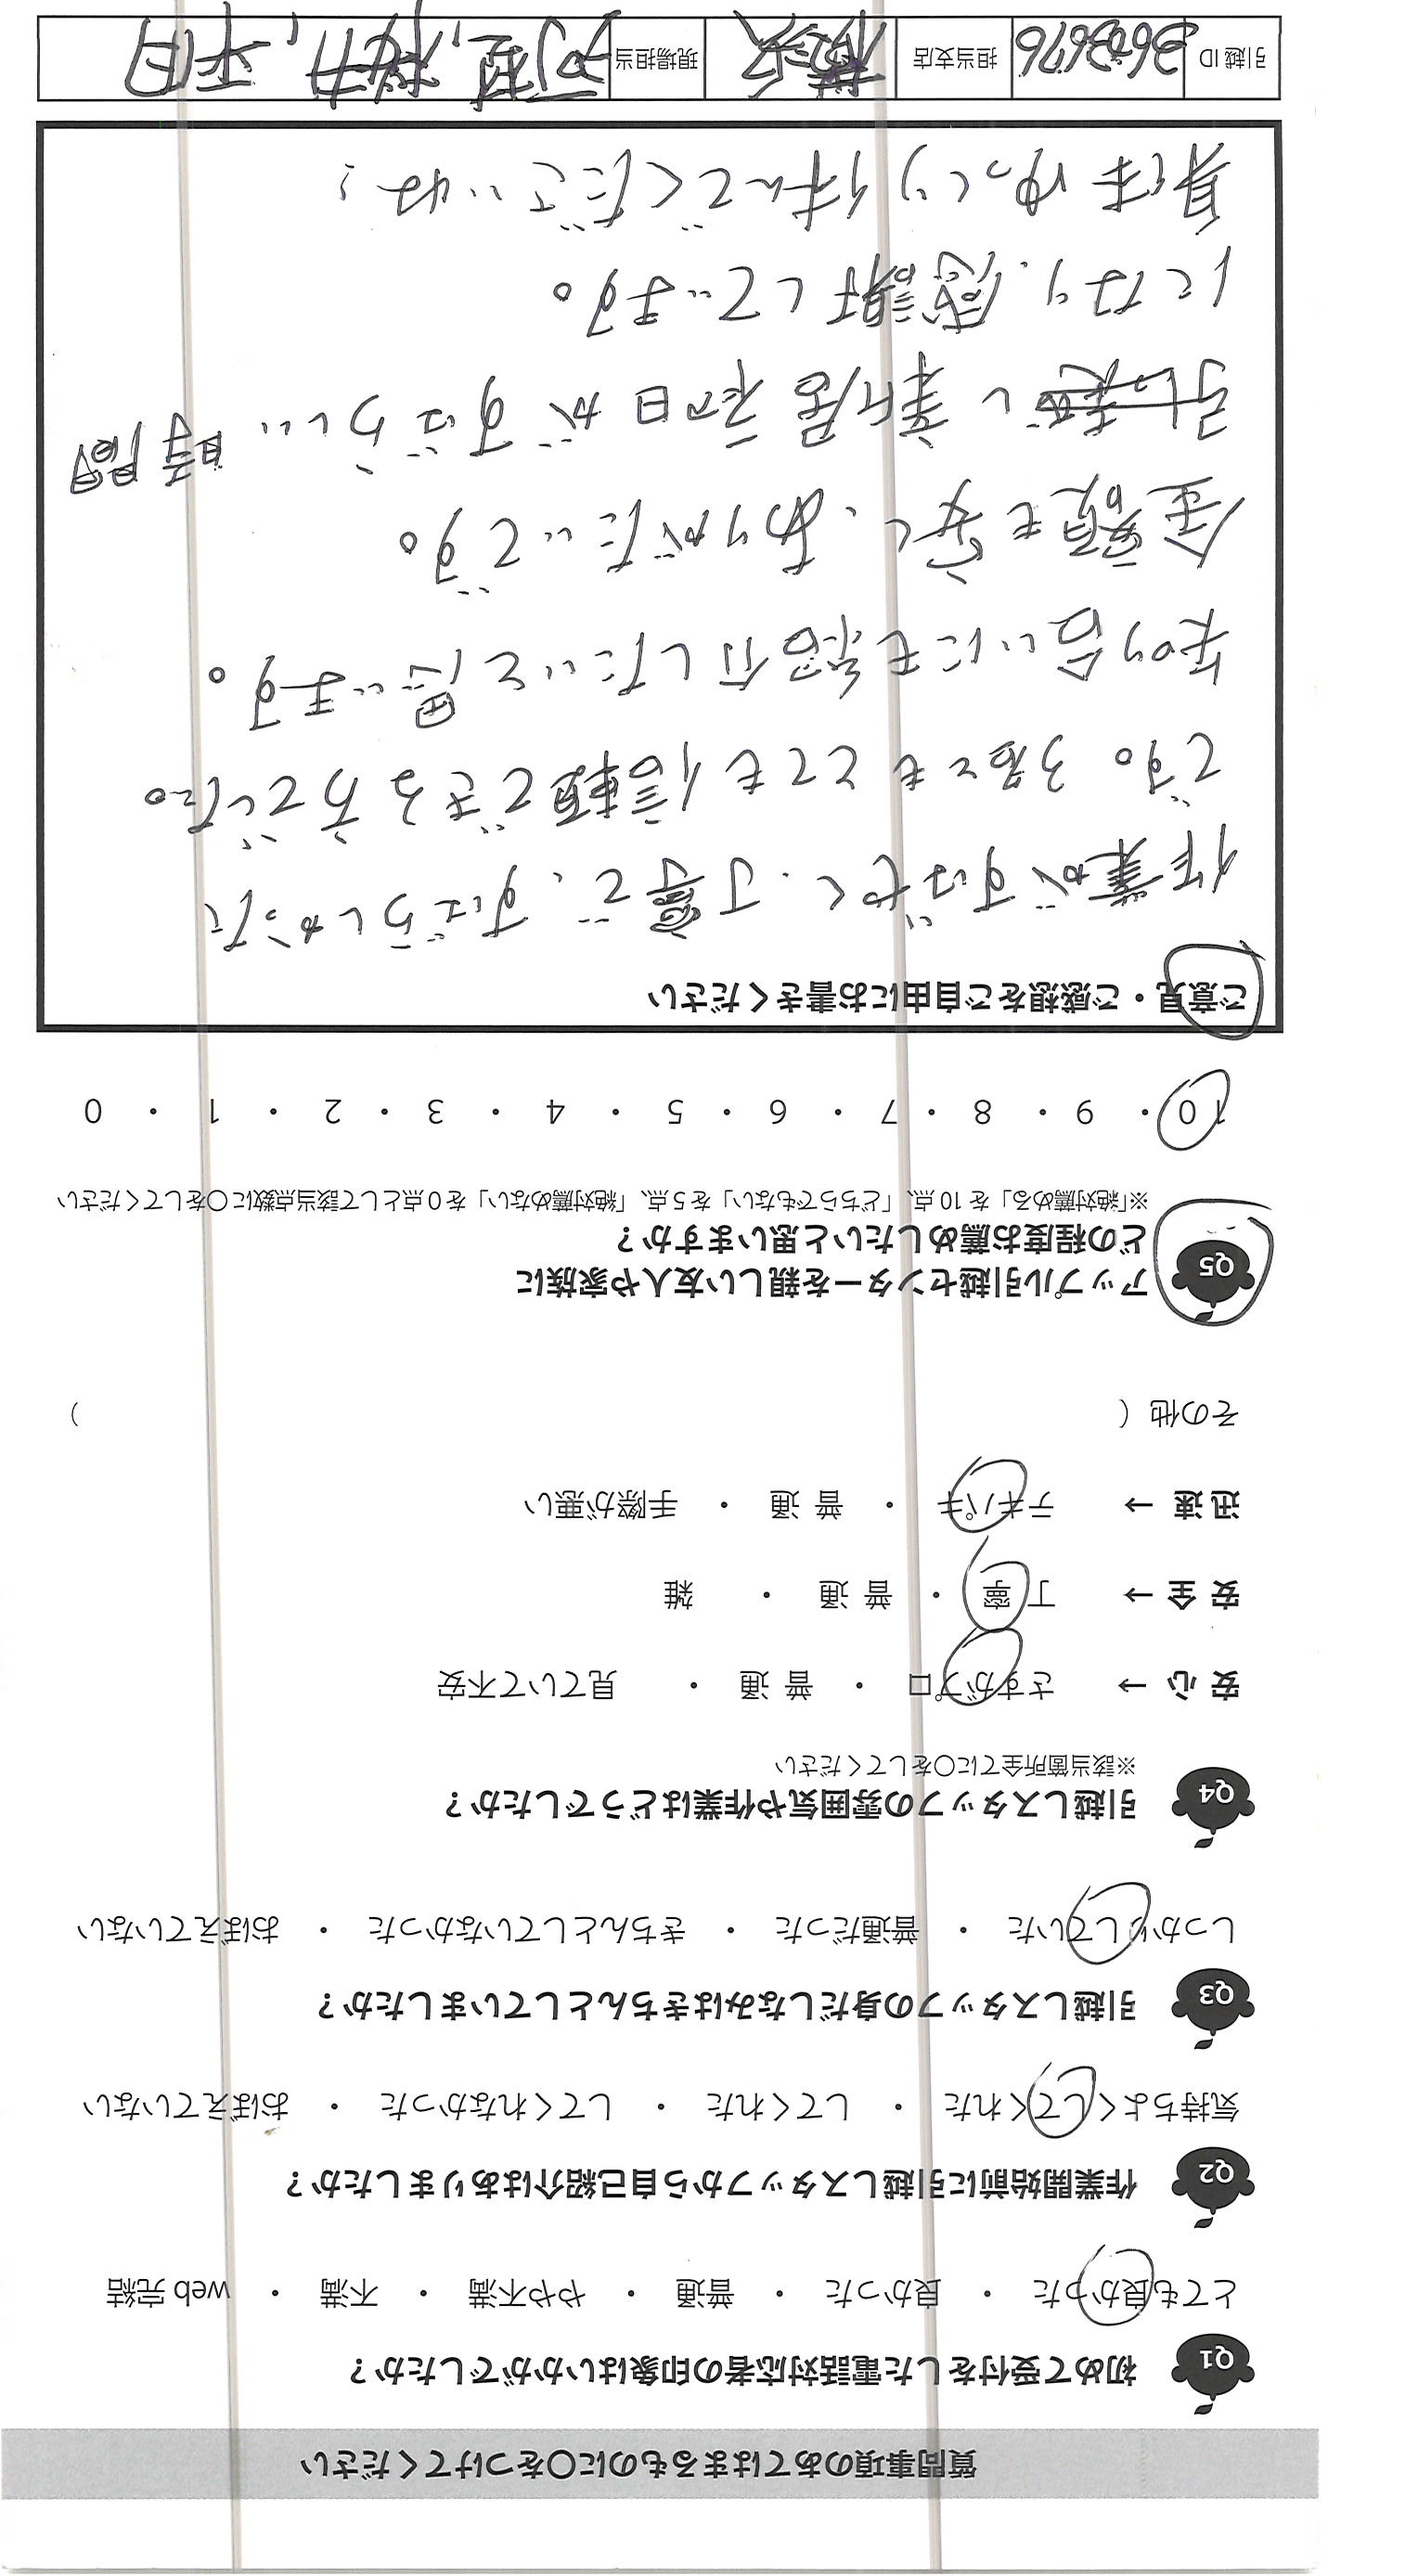 質問事項のあてはまるものに〇をつけてください
Q1 初めて受付をした電話対応者の印象はいかがでしたか？
とても良かった ・ 良かった ・ 普通 ・ やや不満 ・ 不満 ・ web 完結
Q2 作業開始前に引越しスタッフから自己紹介はありましたか？
気持ちよくしてくれた ・ してくれた ・ してくれなかった ・ おぼえていない
Q3 引越しスタッフの身だしなみはきちんとしていましたか？
しっかりしていた ・ 普通だった ・ きちんとしていなかった ・ おぼえていない
Q4 引越しスタッフの雰囲気や作業はどうでしたか？
※該当箇所全てに〇をしてください
安 心 → さすがプロ ・ 普 通 ・ 見ていて不安
安 全 → 丁 寧 ・ 普 通 ・ 雑
迅 速 → テキパキ ・ 普 通 ・ 手際が悪い
その他（ ）
Q5 アップル引越センターを親しい友人や家族に
どの程度お薦めしたいと思いますか？
※「絶対薦める」を 10 点、「どちらでもない」を 5 点、「絶対薦めない」を 0 点として該当点数に〇をしてください
10 ・ 9 ・ 8 ・ 7 ・ 6 ・ 5 ・ 4 ・ 3 ・ 2 ・ 1 ・ 0
ご意見・ご感想をご自由にお書きください
作業がすばやく、丁寧で、すばらしかった
です。3名ともとても信頼できる方でした。
知り合いにも紹介したいと思います。
金額も安く、ありがたいです。
引っ越し 新居初日がすばらしい時間
になり、感謝しています。
身体ゆっくり休んでくださいね！
引越 ID 担当支店 現場担当